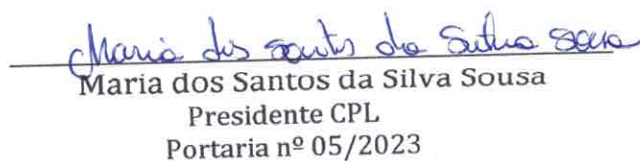 Maria dos Santos da Silva Sousa
Maria dos Santos da Silva Sousa
Presidente CPL
Portaria nº 05/2023